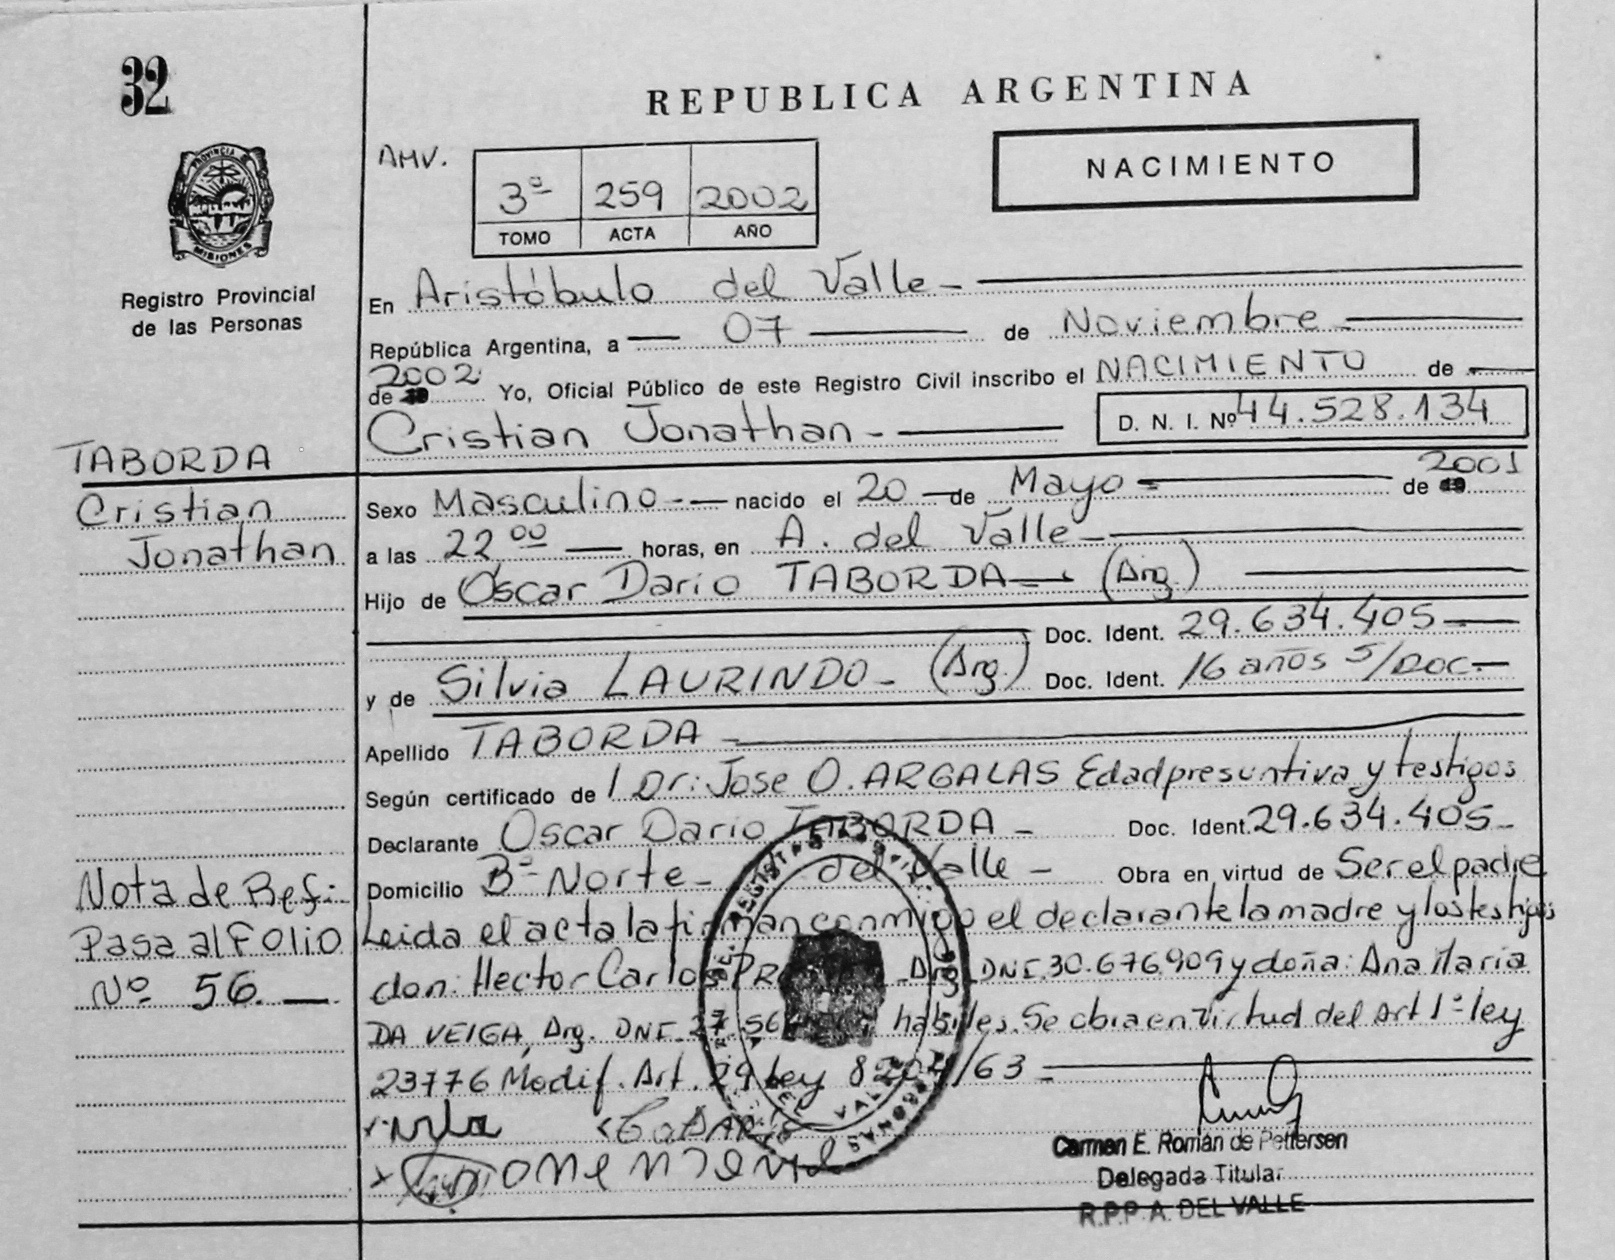 32
REPUBLICA ARGENTINA
AMV.
NACIMIENTO
3º 259 2002
TOMO ACTA AÑO
PROVINCIA DE
MISIONES
Registro Provincial
de las Personas
En Aristóbulo del Valle -
República Argentina, a 07 de Noviembre
2002
de 19 Yo, Oficial Público de este Registro Civil inscribo el NACIMIENTO de
Cristian Jonathan - D. N. I. Nº 44.528.134
TABORDA
Cristian
Jonathan
Sexo Masculino nacido el 20 de Mayo de 19 2001
a las 22 00 horas, en A. del Valle
Hijo de Oscar Dario TABORDA (Arg.)
Doc. Ident. 29.634.405
y de Silvia LAURINDO - (Arg.) Doc. Ident. 16 años S/DOC-
Apellido TABORDA
Según certificado de Dr: Jose O. ARGALAS Edad presuntiva y testigos
Declarante Oscar Dario TABORDA - Doc. Ident. 29.634.405-
Domicilio Bº Norte - del Valle - Obra en virtud de Ser el padre
Nota de Ref:
Pasa al Folio
Nº 56.
Leida el acta la firman conmigo el declarante la madre y los testigos
don: Hector Carlos Arg. DNI. 30.676.909 y doña: Ana Maria
DA VEIGA, Arg. DNI. 27.56 habiles. Se obra en virtud del Art 1º ley
23776 Modif. Art. 29 Ley 8204/63
Carmen E. Román de Pettersen
Delegada Titular
R.P.P. A. DEL VALLE